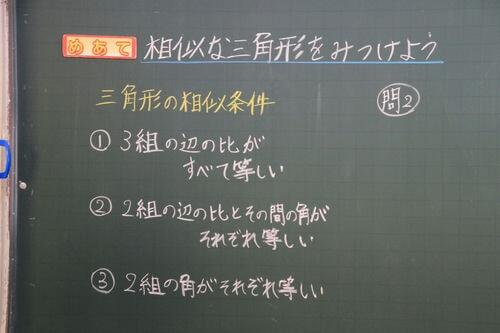 めあて 相似な三角形をみつけよう
三角形の相似条件
問2
① 3組の辺の比が
すべて等しい
② 2組の辺の比とその間の角が
それぞれ等しい
③ 2組の角がそれぞれ等しい